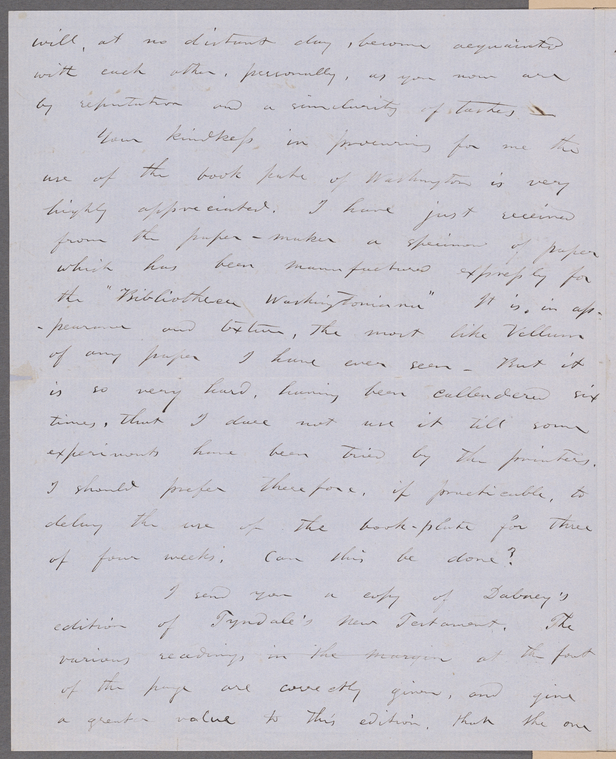 will, at no distant day, become acquainted
with each other, personally, as you now are
by reputation and a similarity of tastes —
Your kindness, in procuring for me the
use of the book plate of Washington is very
highly appreciated. I have just received
from the paper-maker a specimen of paper
which has been manufactured expressly for
the "Bibliotheca Washingtoniana" It is, in ap-
-pearance and texture, the most like Vellum
of any paper I have ever seen - But it
is so very hard, having been callendered six
times, that I dare not use it till some
experiments have been tried by the printers.
I should prefer therefore, if practicable, to
delay the use of the book-plate for three
of four weeks. Can this be done?
I send you a copy of Dabney's
edition of Tyndale's New Testament. The
various readings in the margin at the foot
of the page are correctly given, and give
a greater value to this edition, than the one